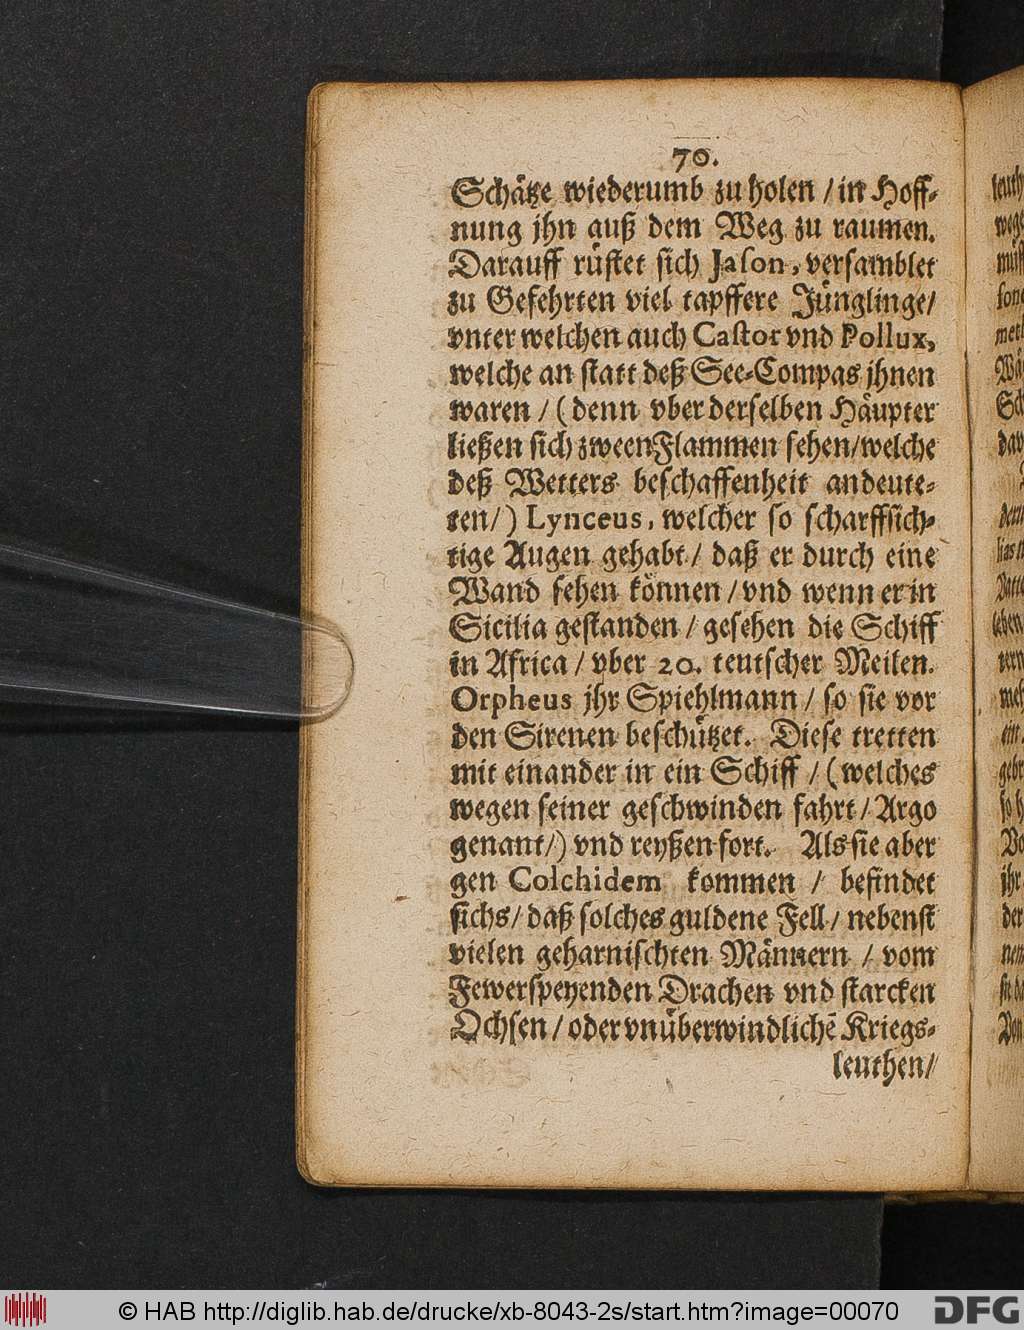 70.
Schätze wiederumb zu holen / in Hoff-
nung jhn auß dem Weg zu raumen.
Darauff rüstet sich Jason, versamblet
zu Gefehrten viel tapffere Jünglinge/
vnter welchen auch Castor vnd Pollux,
welche an statt deß See-Compas jhnen
waren / (denn vber derselben Häupter
ließen sich zween Flammen sehen/welche
deß Wetters beschaffenheit andeute-
ten/) Lynceus, welcher so scharffsich-
tige Augen gehabt / daß er durch eine
Wand sehen können / vnd wenn er in
Sicilia gestanden / gesehen die Schiff
in Africa / vber 20. teutscher Meilen.
Orpheus jhr Spiehlmann / so sie vor
den Sirenen beschützet. Diese tretten
mit einander in ein Schiff / (welches
wegen seiner geschwinden fahrt / Argo
genant/) vnd reyßen fort. Als sie aber
gen Colchidem kommen / befindet
sichs/ daß solches guldene Fell / nebenst
vielen geharnischten Männern / vom
Fewerspeyenden Drachen vnd starcken
Ochsen / oder vnüberwindlichē Kriegs-
leuthen/
© HAB http://diglib.hab.de/drucke/xb-8043-2s/start.htm?image=00070
DFG